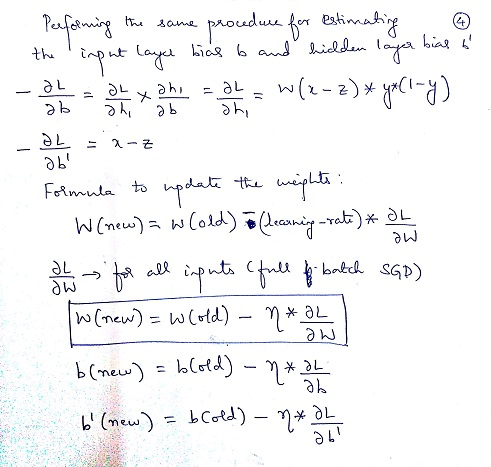 ④
Performing the same procedure for estimating
the input layer bias b and hidden layer bias b'
- ∂L/∂b = ∂L/∂h₁ × ∂h₁/∂b = ∂L/∂h₁ = W(x-z)*y*(1-y)
- ∂L/∂b' = x-z
Formula to update the weights:
W(new) = W(old) - (learning-rate)* ∂L/∂W
∂L/∂W → for all inputs (full batch SGD)
W(new) = W(old) - η* ∂L/∂W
b(new) = b(old) - η* ∂L/∂b
b'(new) = b(old) - η* ∂L/∂b'